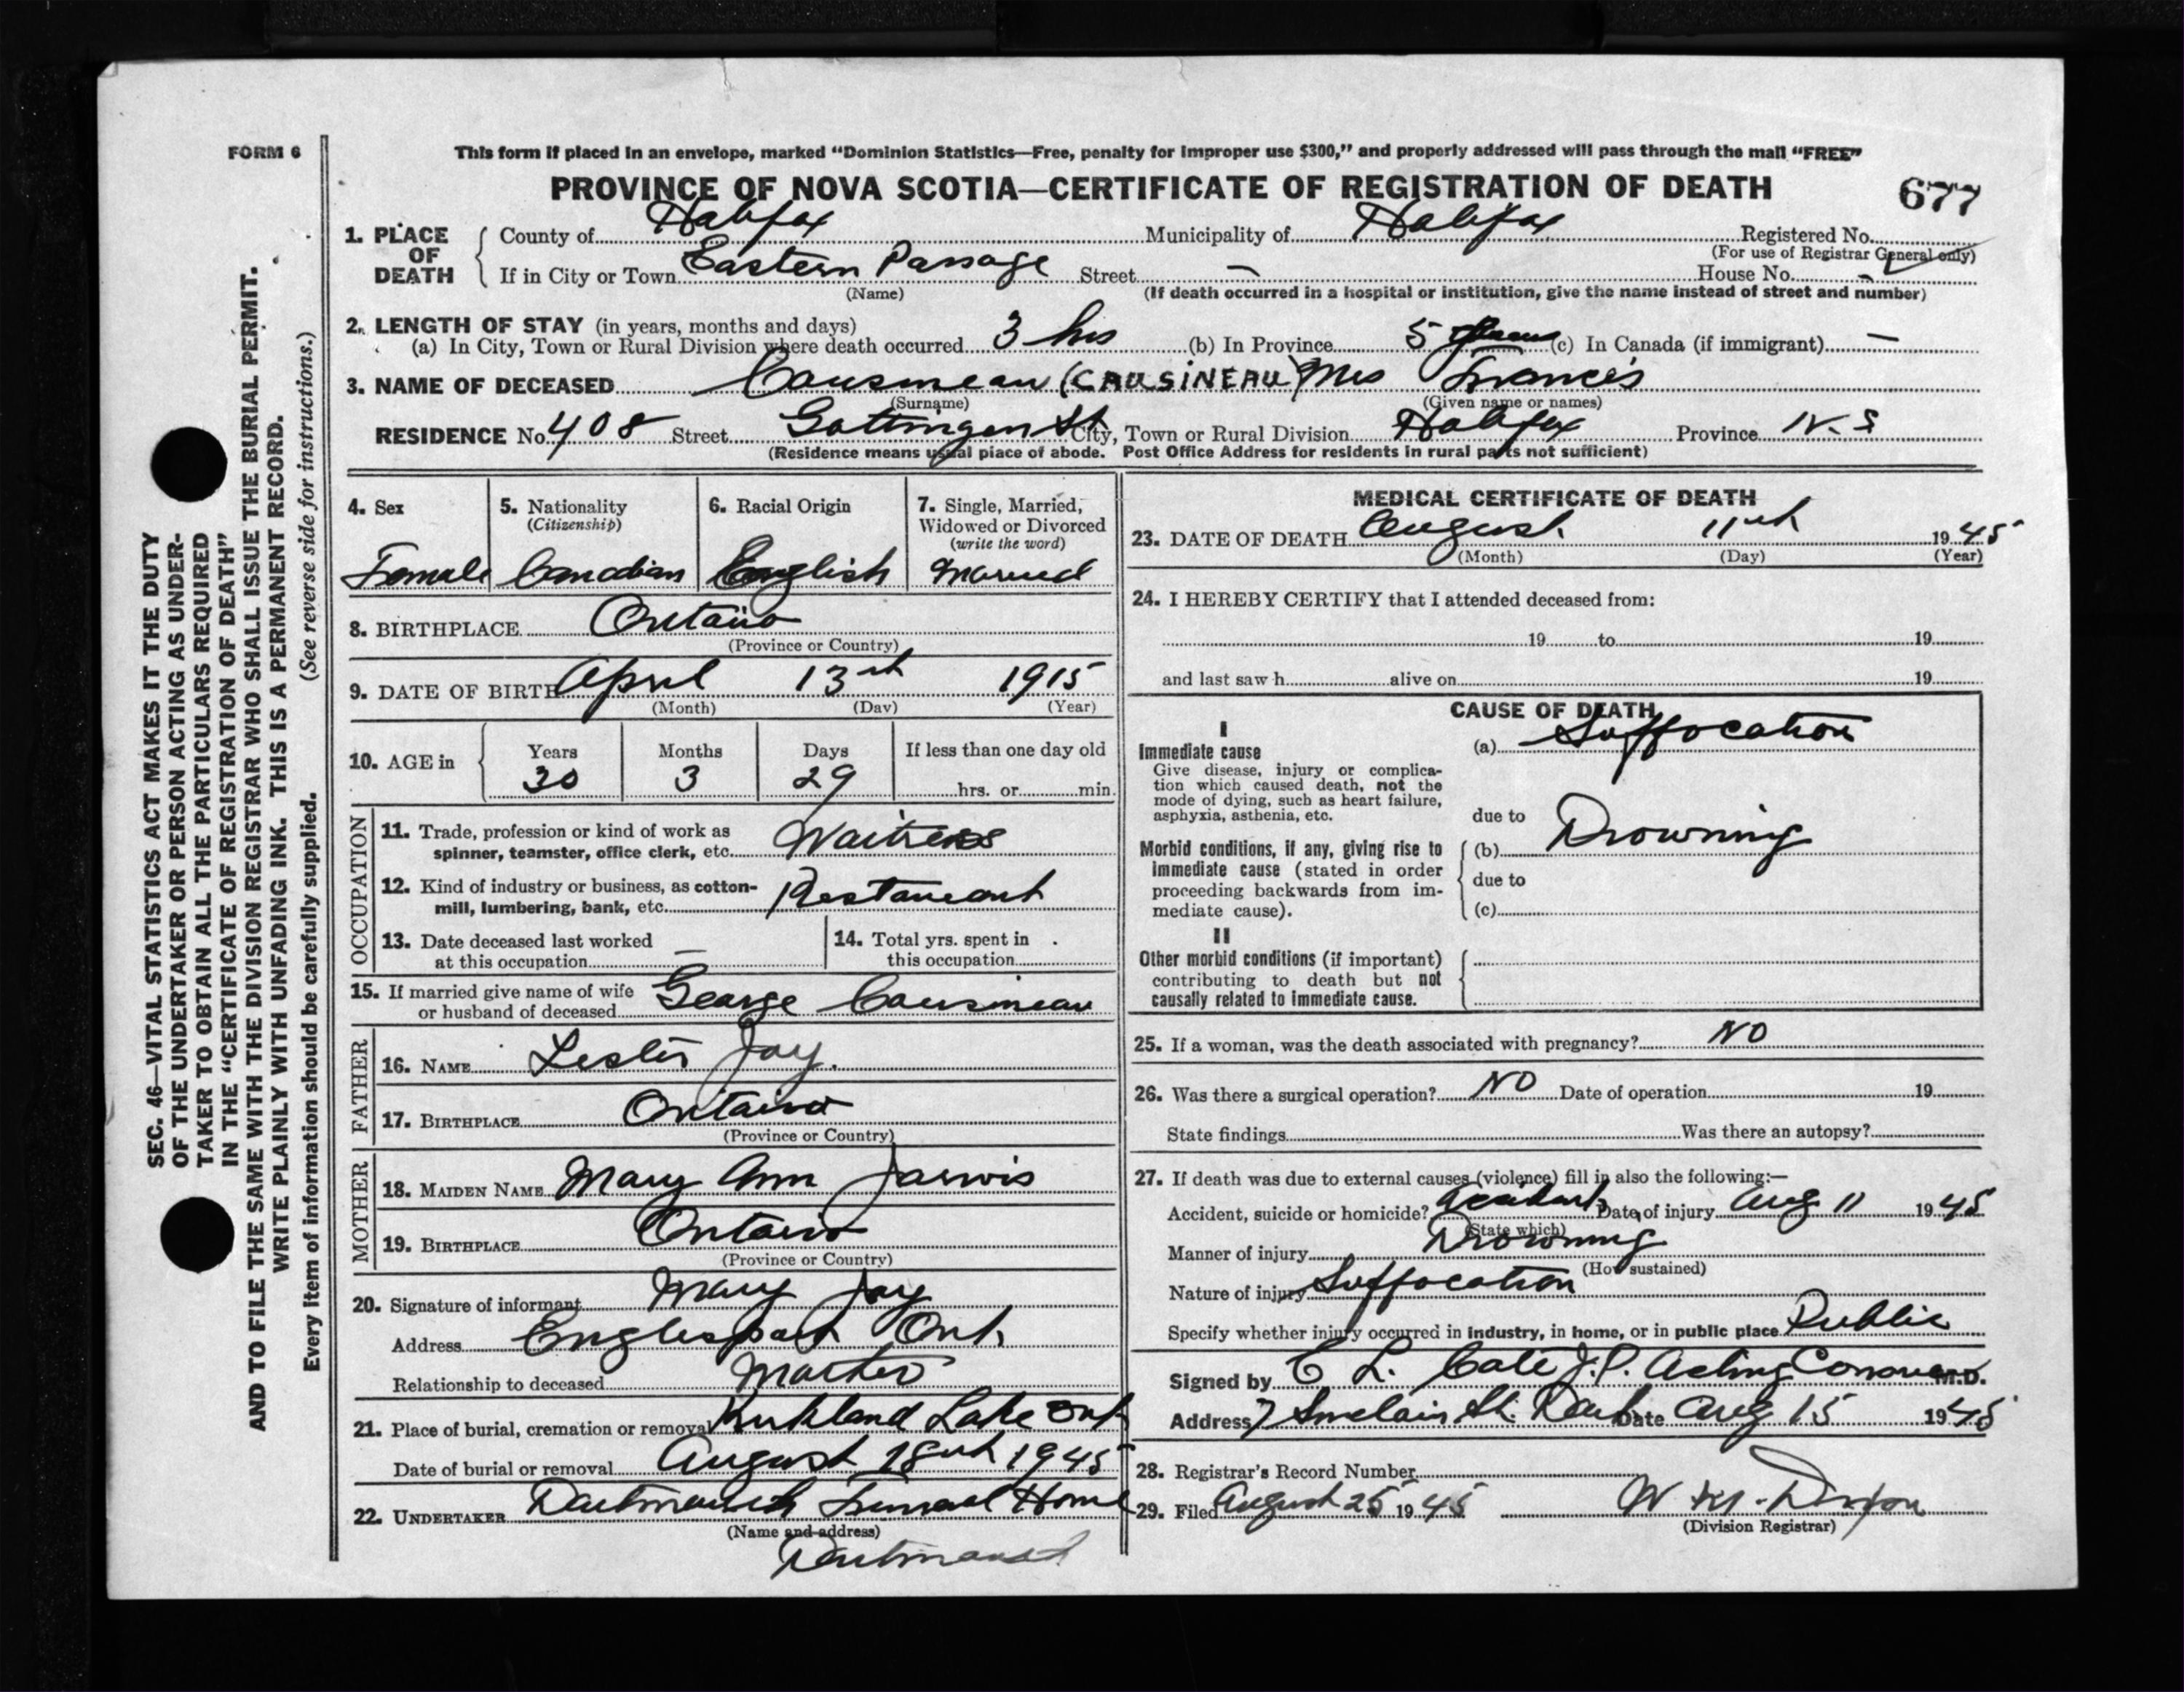 FORM 6
This form if placed in an envelope, marked “Dominion Statistics—Free, penalty for improper use $300,” and properly addressed will pass through the mail “FREE”
PROVINCE OF NOVA SCOTIA—CERTIFICATE OF REGISTRATION OF DEATH
677
1. PLACE OF DEATH
County of Halifax Municipality of Halifax Registered No.
(For use of Registrar General only)
If in City or Town Eastern Passage Street — House No. -
(Name) (If death occurred in a hospital or institution, give the name instead of street and number)
2. LENGTH OF STAY (in years, months and days)
(a) In City, Town or Rural Division where death occurred 3 hrs (b) In Province 5 years (c) In Canada (if immigrant) —
3. NAME OF DECEASED Causineau (CAUSINEAU) Mrs Francis
(Surname) (Given name or names)
RESIDENCE No. 408 Street Gottingen St City, Town or Rural Division Halifax Province N-S
(Residence means usual place of abode. Post Office Address for residents in rural parts not sufficient)
4. Sex
Female
5. Nationality
(Citizenship)
Canadian
6. Racial Origin
English
7. Single, Married,
Widowed or Divorced
(write the word)
Married
8. BIRTHPLACE Ontario
(Province or Country)
9. DATE OF BIRTH April 13th 1915
(Month) (Day) (Year)
10. AGE in
Years Months Days If less than one day old
30 3 29 hrs. or min.
OCCUPATION
11. Trade, profession or kind of work as
spinner, teamster, office clerk, etc. Waitress
12. Kind of industry or business, as cotton-
mill, lumbering, bank, etc. Restaurant
13. Date deceased last worked
at this occupation —
14. Total yrs. spent in
this occupation
15. If married give name of wife
or husband of deceased George Causineau
FATHER
16. NAME Lester Jay.
17. BIRTHPLACE Ontario
(Province or Country)
MOTHER
18. MAIDEN NAME Mary Ann Jarvis
19. BIRTHPLACE Ontario
(Province or Country)
20. Signature of informant Mary Jay
Address Ont.
Relationship to deceased Mother
21. Place of burial, cremation or removal Kirkland Lake Ont
Date of burial or removal August 18th 1945
22. UNDERTAKER Dartmouth Funeral Home
(Name and address)
Dartmouth
MEDICAL CERTIFICATE OF DEATH
23. DATE OF DEATH August 11th 1945
(Month) (Day) (Year)
24. I HEREBY CERTIFY that I attended deceased from:
19 to 19
and last saw h alive on 19
CAUSE OF DEATH
I
Immediate cause
Give disease, injury or complica-
tion which caused death, not the
mode of dying, such as heart failure,
asphyxia, asthenia, etc.
(a) Suffocation
due to
Morbid conditions, if any, giving rise to
immediate cause (stated in order
proceeding backwards from im-
mediate cause).
(b) Drowning
due to
(c)
II
Other morbid conditions (if important)
contributing to death but not
causally related to immediate cause.
25. If a woman, was the death associated with pregnancy? NO
26. Was there a surgical operation? NO Date of operation 19
State findings Was there an autopsy?
27. If death was due to external causes (violence) fill in also the following:—
Accident, suicide or homicide? Accident Date of injury Aug 11 1945
(State which)
Manner of injury Drowning
(How sustained)
Nature of injury Suffocation
Specify whether injury occurred in industry, in home, or in public place Public
Signed by C L. Cate J.P. Acting Coroner M.D.
Address 7 Sinclair St. Dart Date Aug 15 1945
28. Registrar's Record Number
29. Filed August 25 1945 W M. Dixon
(Division Registrar)
SEC. 46—VITAL STATISTICS ACT MAKES IT THE DUTY
OF THE UNDERTAKER OR PERSON ACTING AS UNDER-
TAKER TO OBTAIN ALL THE PARTICULARS REQUIRED
IN THE “CERTIFICATE OF REGISTRATION OF DEATH”
AND TO FILE THE SAME WITH THE DIVISION REGISTRAR WHO SHALL ISSUE THE BURIAL PERMIT.
WRITE PLAINLY WITH UNFADING INK. THIS IS A PERMANENT RECORD.
Every item of information should be carefully supplied. (See reverse side for instructions.)